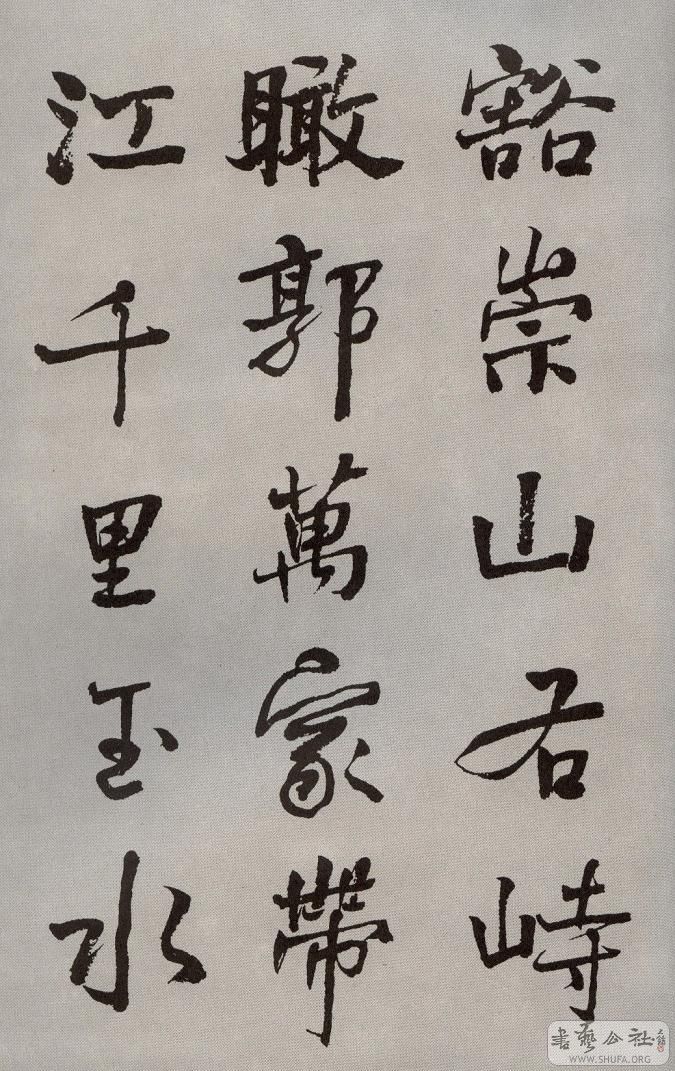 豁崇山右峙
瞰郭萬家帶
江千里玉水
書藝公社
WWW.SHUFA.ORG